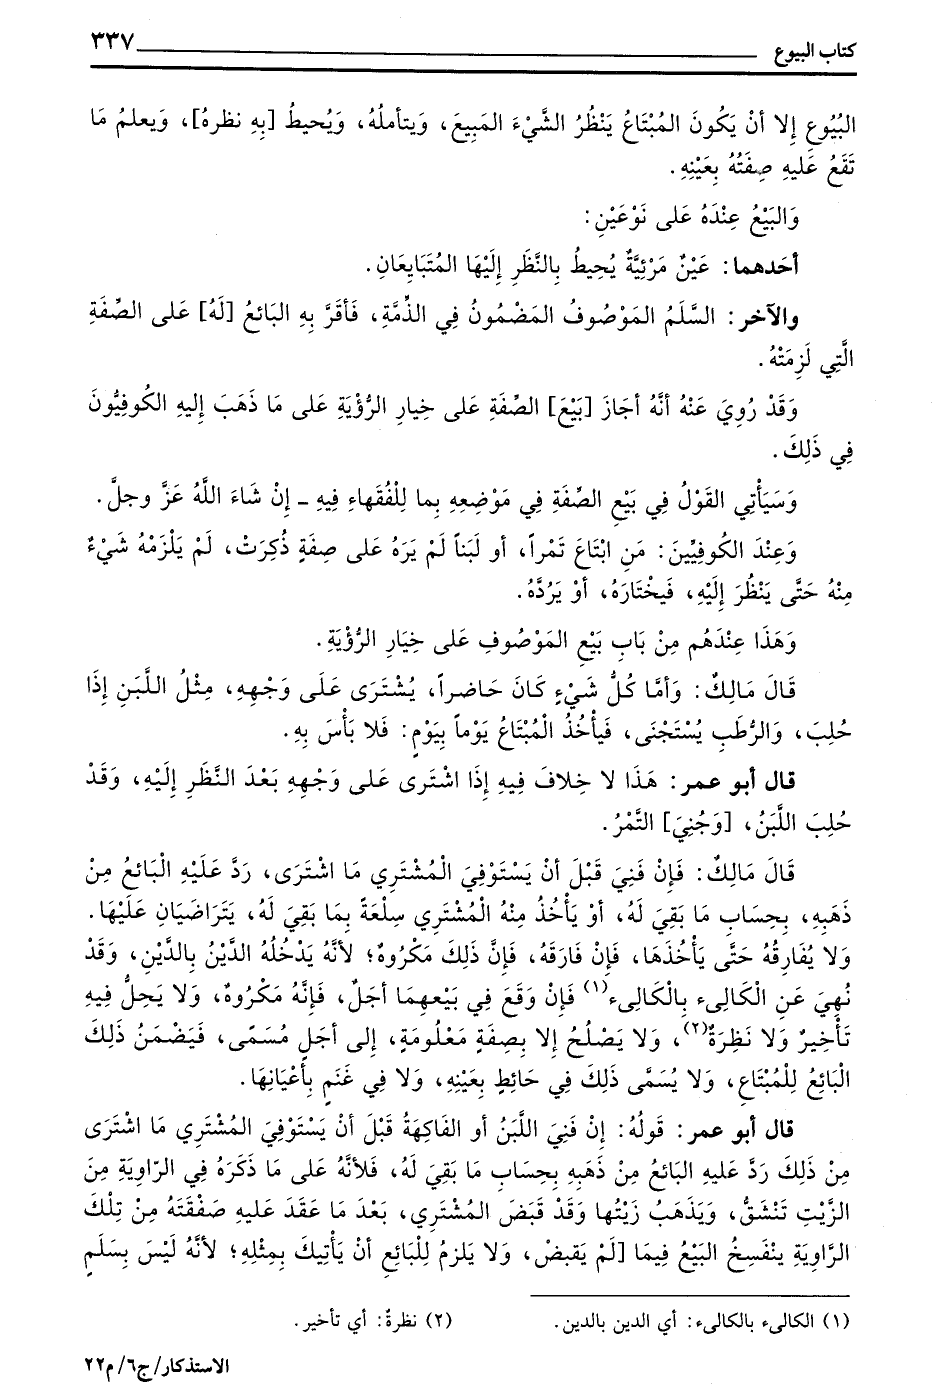 كتاب البيوع ٣٣٧
البُيُوعِ إلا أنْ يَكُونَ المُبْتَاعُ يَنْظُرُ الشَّيْءَ المَبِيعَ، ويتأملُهُ، ويُحيطُ [بِهِ نظرهُ]، ويعلمُ مَا
تَقَعُ عَليهِ صِفَتُهُ بِعَيْنِهِ.
وَالبَيْعُ عِنْدَهُ عَلى نَوْعَيْنِ:
أحَدهما: عَيْنٌ مَرْئِيَّةٌ يُحِيطُ بِالنَّظَرِ إِلَيْهَا المُتَبَايِعَانِ.
والآخر: السَّلَمُ المَوْصُوفُ المَضْمُونُ فِي الذِّمَّةِ، فَأقَرَّ بِهِ البَائعُ [لَهُ] عَلى الصِّفَةِ
الَّتِي لَزِمَتْهُ.
وَقَدْ رُوِيَ عَنْهُ أنَّهُ أجَازَ [بَيْعَ] الصِّفَةِ عَلى خِيارِ الرُّؤْيَةِ عَلى مَا ذَهَبَ إليهِ الكُوفِيُّونَ
فِي ذَلِكَ.
وَسَيَأْتِي القَوْلُ فِي بَيْعِ الصِّفَةِ فِي مَوْضِعِهِ بِما لِلْفُقَهاءِ فِيهِ ـ إنْ شَاءَ اللَّهُ عَزَّ وجلَّ.
وَعِنْدَ الكُوفِيِّينَ: مَنِ ابْتَاعَ تَمْراً، أو لَبَناً لَمْ يَرَهُ عَلى صِفَةٍ ذُكِرَتْ، لَمْ يَلْزَمْهُ شَيْءٌ
مِنْهُ حَتَّى يَنْظُرَ إِلَيْهِ، فَيخْتَارَهُ، أوْ يَرُدَّهُ.
وَهَذَا عِنْدَهُم مِنْ بَابِ بَيْعِ المَوْصُوفِ عَلى خِيَارِ الرُّؤْيَةِ.
قَالَ مَالِكٌ: وَأمَّا كُلُّ شَيْءٍ كَانَ حَاضراً، يُشْتَرَى عَلَى وَجْهِهِ، مِثْلُ اللَّبَنِ إِذَا
حُلِبَ، وَالرُّطَبِ يُسْتَجْنَى، فَيأْخُذُ الْمُبْتَاعُ يَوْماً بِيَوْمٍ: فَلا بَأْسَ بِهِ.
قال أبو عمر: هَذَا لا خِلافَ فِيهِ إِذَا اشْتَرى عَلى وَجْهِهِ بَعْدَ النَّظَرِ إِلَيْهِ، وَقَدْ
حُلِبَ اللَّبَنُ، [وَجُنِيَ] التَّمْرُ.
قَالَ مَالِكٌ: فَإِنْ فَنِيَ قَبْلَ أنْ يَسْتَوْفِيَ الْمُشْتَرِي مَا اشْتَرَى، رَدَّ عَلَيْهِ الْبَائعُ مِنْ
ذَهَبِهِ، بِحِسَابِ مَا بَقِيَ لَهُ، أوْ يَأْخُذُ مِنْهُ الْمُشْتَرِي سِلْعَةً بِمَا بَقِيَ لَهُ، يَتَرَاضَيَانِ عَلَيْهَا.
وَلا يُفَارِقُهُ حَتَّى يَأْخُذَهَا، فَإِنْ فَارَقَهُ، فَإِنَّ ذَلِكَ مَكْرُوهٌ؛ لأنَّهُ يَدْخُلُهُ الدَّيْنُ بِالدَّيْنِ، وَقَدْ
نُهِيَ عَنِ الْكَالِىء بِالْكَالِىء(١) فَإِنْ وَقَعَ فِي بَيْعِهِمَا أجَلٌ، فَإِنَّهُ مَكْرُوهٌ، وَلا يَحِلُّ فِيهِ
تَأْخِيرٌ وَلا نَظِرَةٌ(٢)، وَلا يَصْلُحُ إلا بِصِفَةٍ مَعْلُومَةٍ، إلى أجَلٍ مُسَمّى، فَيَضْمَنُ ذَلِكَ
الْبَائِعُ لِلْمُبْتَاعِ، وَلا يُسَمَّى ذَلِكَ فِي حَائِطٍ بِعَيْنِهِ، وَلا فِي غَنَمٍ بِأَعْيَانِهَا.
قال أبو عمر: قَولُهُ: إنْ فَنِيَ اللَّبَنُ أو الفَاكِهَةُ قَبْلَ أنْ يَسْتَوْفِيَ المُشْتَرِي مَا اشْتَرَى
مِنْ ذَلِكَ رَدَّ عَليهِ البَائعُ مِنْ ذَهَبِهِ بِحِسَابِ مَا بَقِيَ لَهُ، فَلأنَّهُ عَلى مَا ذَكَرَهُ فِي الرّاوِيَةِ مِنَ
الزَّيْتِ تَنْشَقُّ، وَيَذْهَبُ زَيْتُها وَقَدْ قَبَضَ المُشْتَرِي، بَعْدَ مَا عَقَدَ عَليهِ صَفْقَتَهُ مِنْ تِلْكَ
الرَّاوِيَةِ يَنْفَسِخُ البَيْعُ فِيمَا [لَمْ يَقبضْ، وَلا يَلزمُ لِلْبَائعِ أنْ يَأْتِيكَ بِمِثْلِهِ؛ لأنَّهُ لَيْسَ بِسَلَمٍ
(١) الكالىء بالكالىء: أي الدين بالدين. (٢) نظرةٌ: أي تأخير.
الاستذكار/ج٦/م٢٢